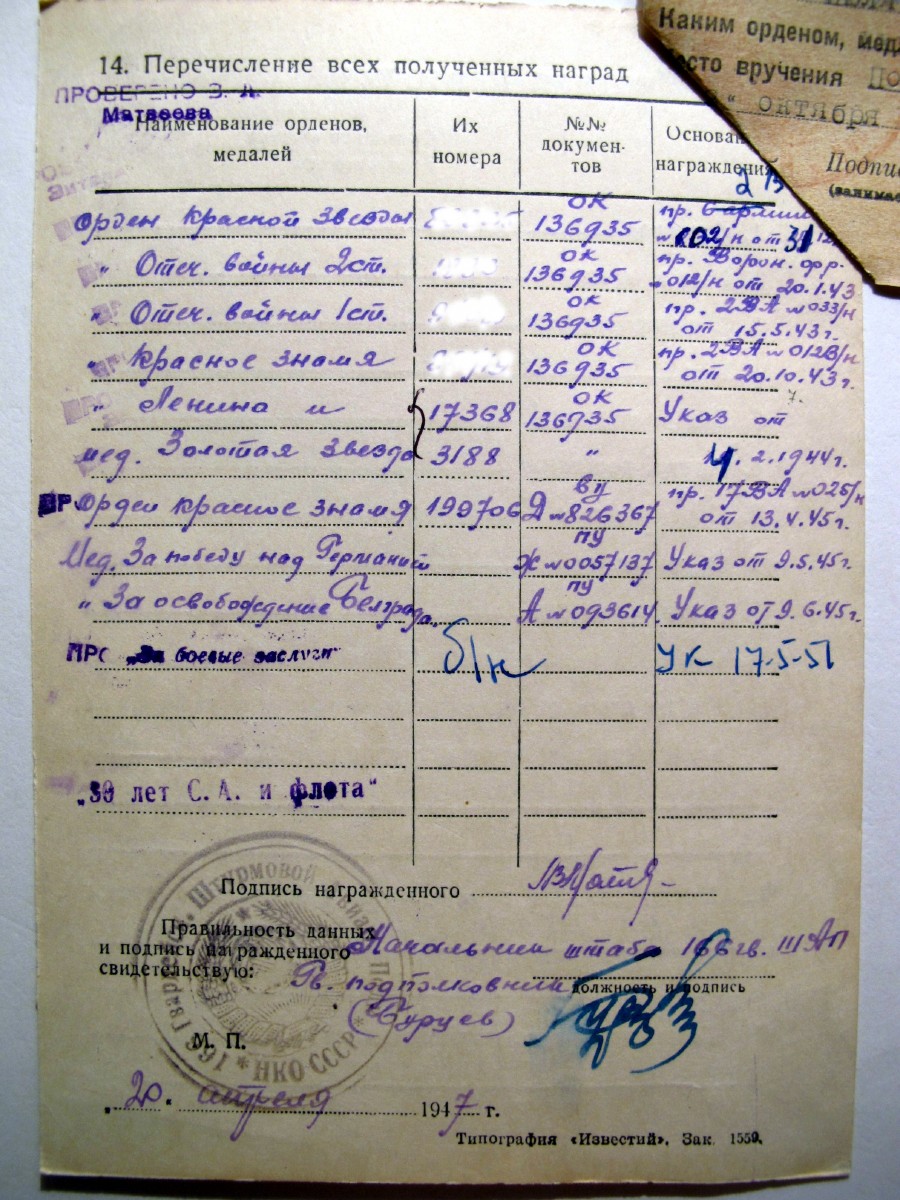 Каким орденом, мед
сто вручения По
" октября
Подпис
(занимае
14. Перечисление всех полученных наград
ПРОВЕРЕНО В. А.
Матвеева
Наименование орденов, медалей
Их номера
№№ документов
Основан награждения
Орден Красной Звезды ОК 136935 пр. 2 ВА №02/н от 31.12
" Отеч. войны 2ст. ОК 136935 пр. Ворон. фр. 012/н от 20.1.43
" Отеч. войны 1ст. ОК 136935 пр. 2ВА №033/н от 15.5.43г.
" Красное знамя ОК 136935 пр. 2ВА № 012В/н от 20.10.43г.
" Ленина и 17368 ОК 136935 Указ от
мед. Золотая Звезда 3188 " 4.2.1944г.
ПР Орден красное знамя 199706 ВУ Д №826367 пр. 17ВА №025/н от 13.4.45г.
Мед. За победу над Германий ПУ Ж №0057137 Указ от 9.5.45г.
" За освобождение Белграда. ПУ А №093614 Указ от 9.6.45г.
ПРО „За боевые заслуги" б/н УК 17-5-51
„30 лет С. А. и флота"
Подпись награжденного
Правильность данных
и подпись награжденного Начальник штаба 166 гв. ШАП
свидетельствую: Гв. подполковник
должность и подпись
(Бурцев)
М. П.
166 Гвардейс. Штурмовой Авиац. П * НКО-СССР *
„20" апреля 1947 г.
Типография «Известий», Зак. 1559.